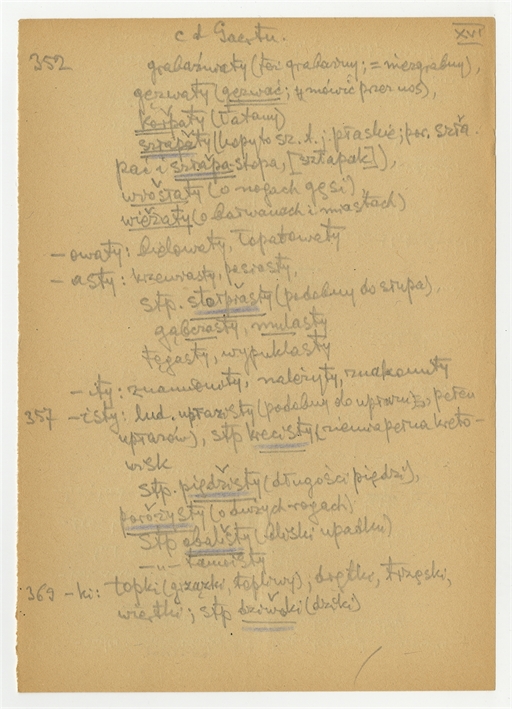 c d Gaertn. XVI
352 grabaźwaty (też grabaźny; = niezgrabny),
gęgwaty (gęgwać; ymówić przez nos),
korpaty (łatany)
szłapaty (kopyto sz. t. j. płaskie; por. szła
pać i szłapa-stopa, [szłapak]),
wrostaty (o nogach gęsi),
wieżaty (o barwanach i miastach)
- owaty: bielowaty, łopatowaty
- asty: krzewiasty, pasiasty,
stp. słopiasty (podobny do słupa),
gąbczasty, mulasty
tęgasty, wypuklasty
- ity: znamienity, należyty, znakomity
357 - isty: lud. uprazisty (podobny do upłazu, pełen
upłazów), stp krecisty (ziemia pełna kreto-
wisk
stp. piędzisty (długości piędzi),
porożysty (o dużych rogach)
stp obalisty (bliski upadku)
-"- łamisty
369 - ki: łopki (grzązki, topliwy), drętki, trzęski,
wiertki; stp dziwoki (dziki)